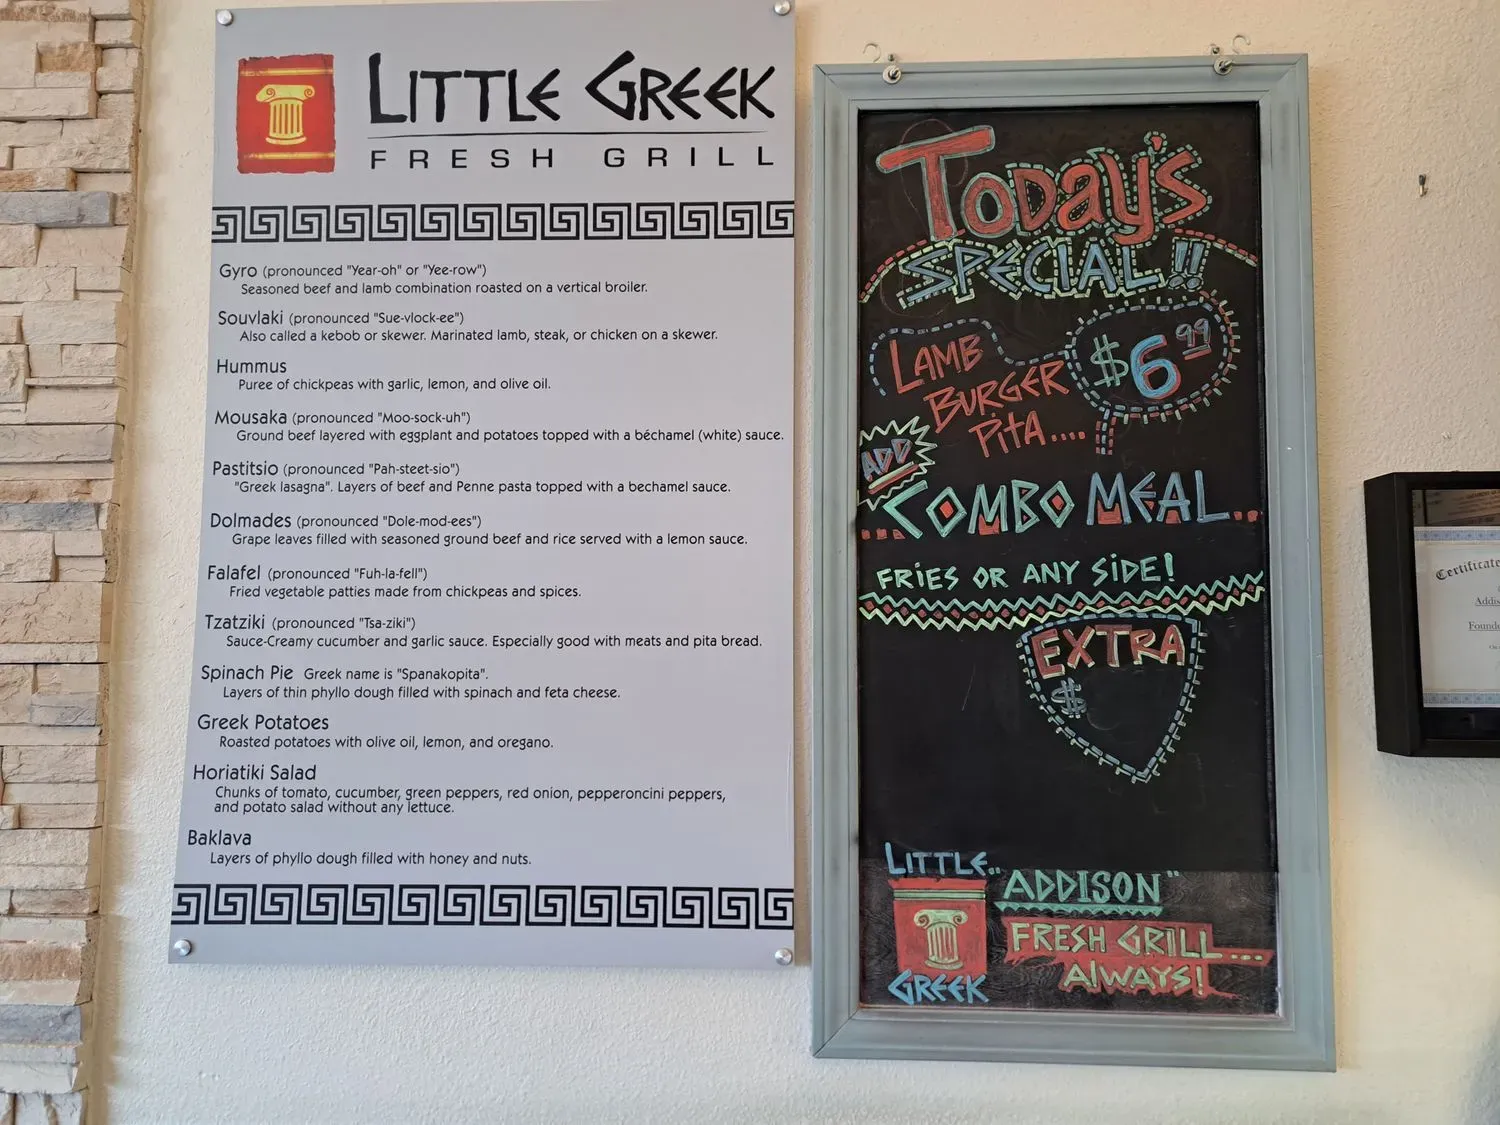 LITTLE GREEK
FRESH GRILL
Gyro (pronounced "Year-oh" or "Yee-row")
Seasoned beef and lamb combination roasted on a vertical broiler.
Souvlaki (pronounced "Sue-vlock-ee")
Also called a kebob or skewer. Marinated lamb, steak, or chicken on a skewer.
Hummus
Puree of chickpeas with garlic, lemon, and olive oil.
Mousaka (pronounced "Moo-sock-uh")
Ground beef layered with eggplant and potatoes topped with a béchamel (white) sauce.
Pastitsio (pronounced "Pah-steet-sio")
"Greek lasagna". Layers of beef and Penne pasta topped with a bechamel sauce.
Dolmades (pronounced "Dole-mod-ees")
Grape leaves filled with seasoned ground beef and rice served with a lemon sauce.
Falafel (pronounced "Fuh-la-fell")
Fried vegetable patties made from chickpeas and spices.
Tzatziki (pronounced "Tsa-ziki")
Sauce-Creamy cucumber and garlic sauce. Especially good with meats and pita bread.
Spinach Pie Greek name is "Spanakopita".
Layers of thin phyllo dough filled with spinach and feta cheese.
Greek Potatoes
Roasted potatoes with olive oil, lemon, and oregano.
Horiatiki Salad
Chunks of tomato, cucumber, green peppers, red onion, pepperoncini peppers,
and potato salad without any lettuce.
Baklava
Layers of phyllo dough filled with honey and nuts.
TODAY'S
SPECIAL!!
LAMB
BURGER
PITA....
$6.99
ADD
...COMBO MEAL...
FRIES OR ANY SIDE!
EXTRA
$
LITTLE..
"ADDISON"
FRESH GRILL...
ALWAYS!
GREEK
Certificate